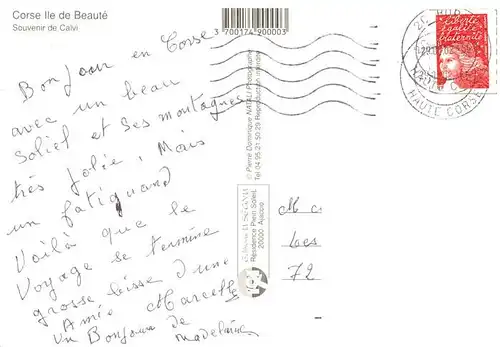 Corse Ile de Beauté
Souvenir de Calvi
3 700174 900003
Bonjour en Corse
avec un beau
Soleil et Ses montagnes
très Jolie, Mais
un fatiguand
Voilà que le
Voyage se termine
grosse bisse d'une
Amie Marcelle
Un Bonjour de
Madeleine
© Pierre Dominique NATALI Photographe
Tel 04 95 21 50 29 Reproduction interdite
Résidence Plein Soleil
20000 Ajaccio
liberté
égalité
fraternité
HAUTE CORSE
M
Les
72